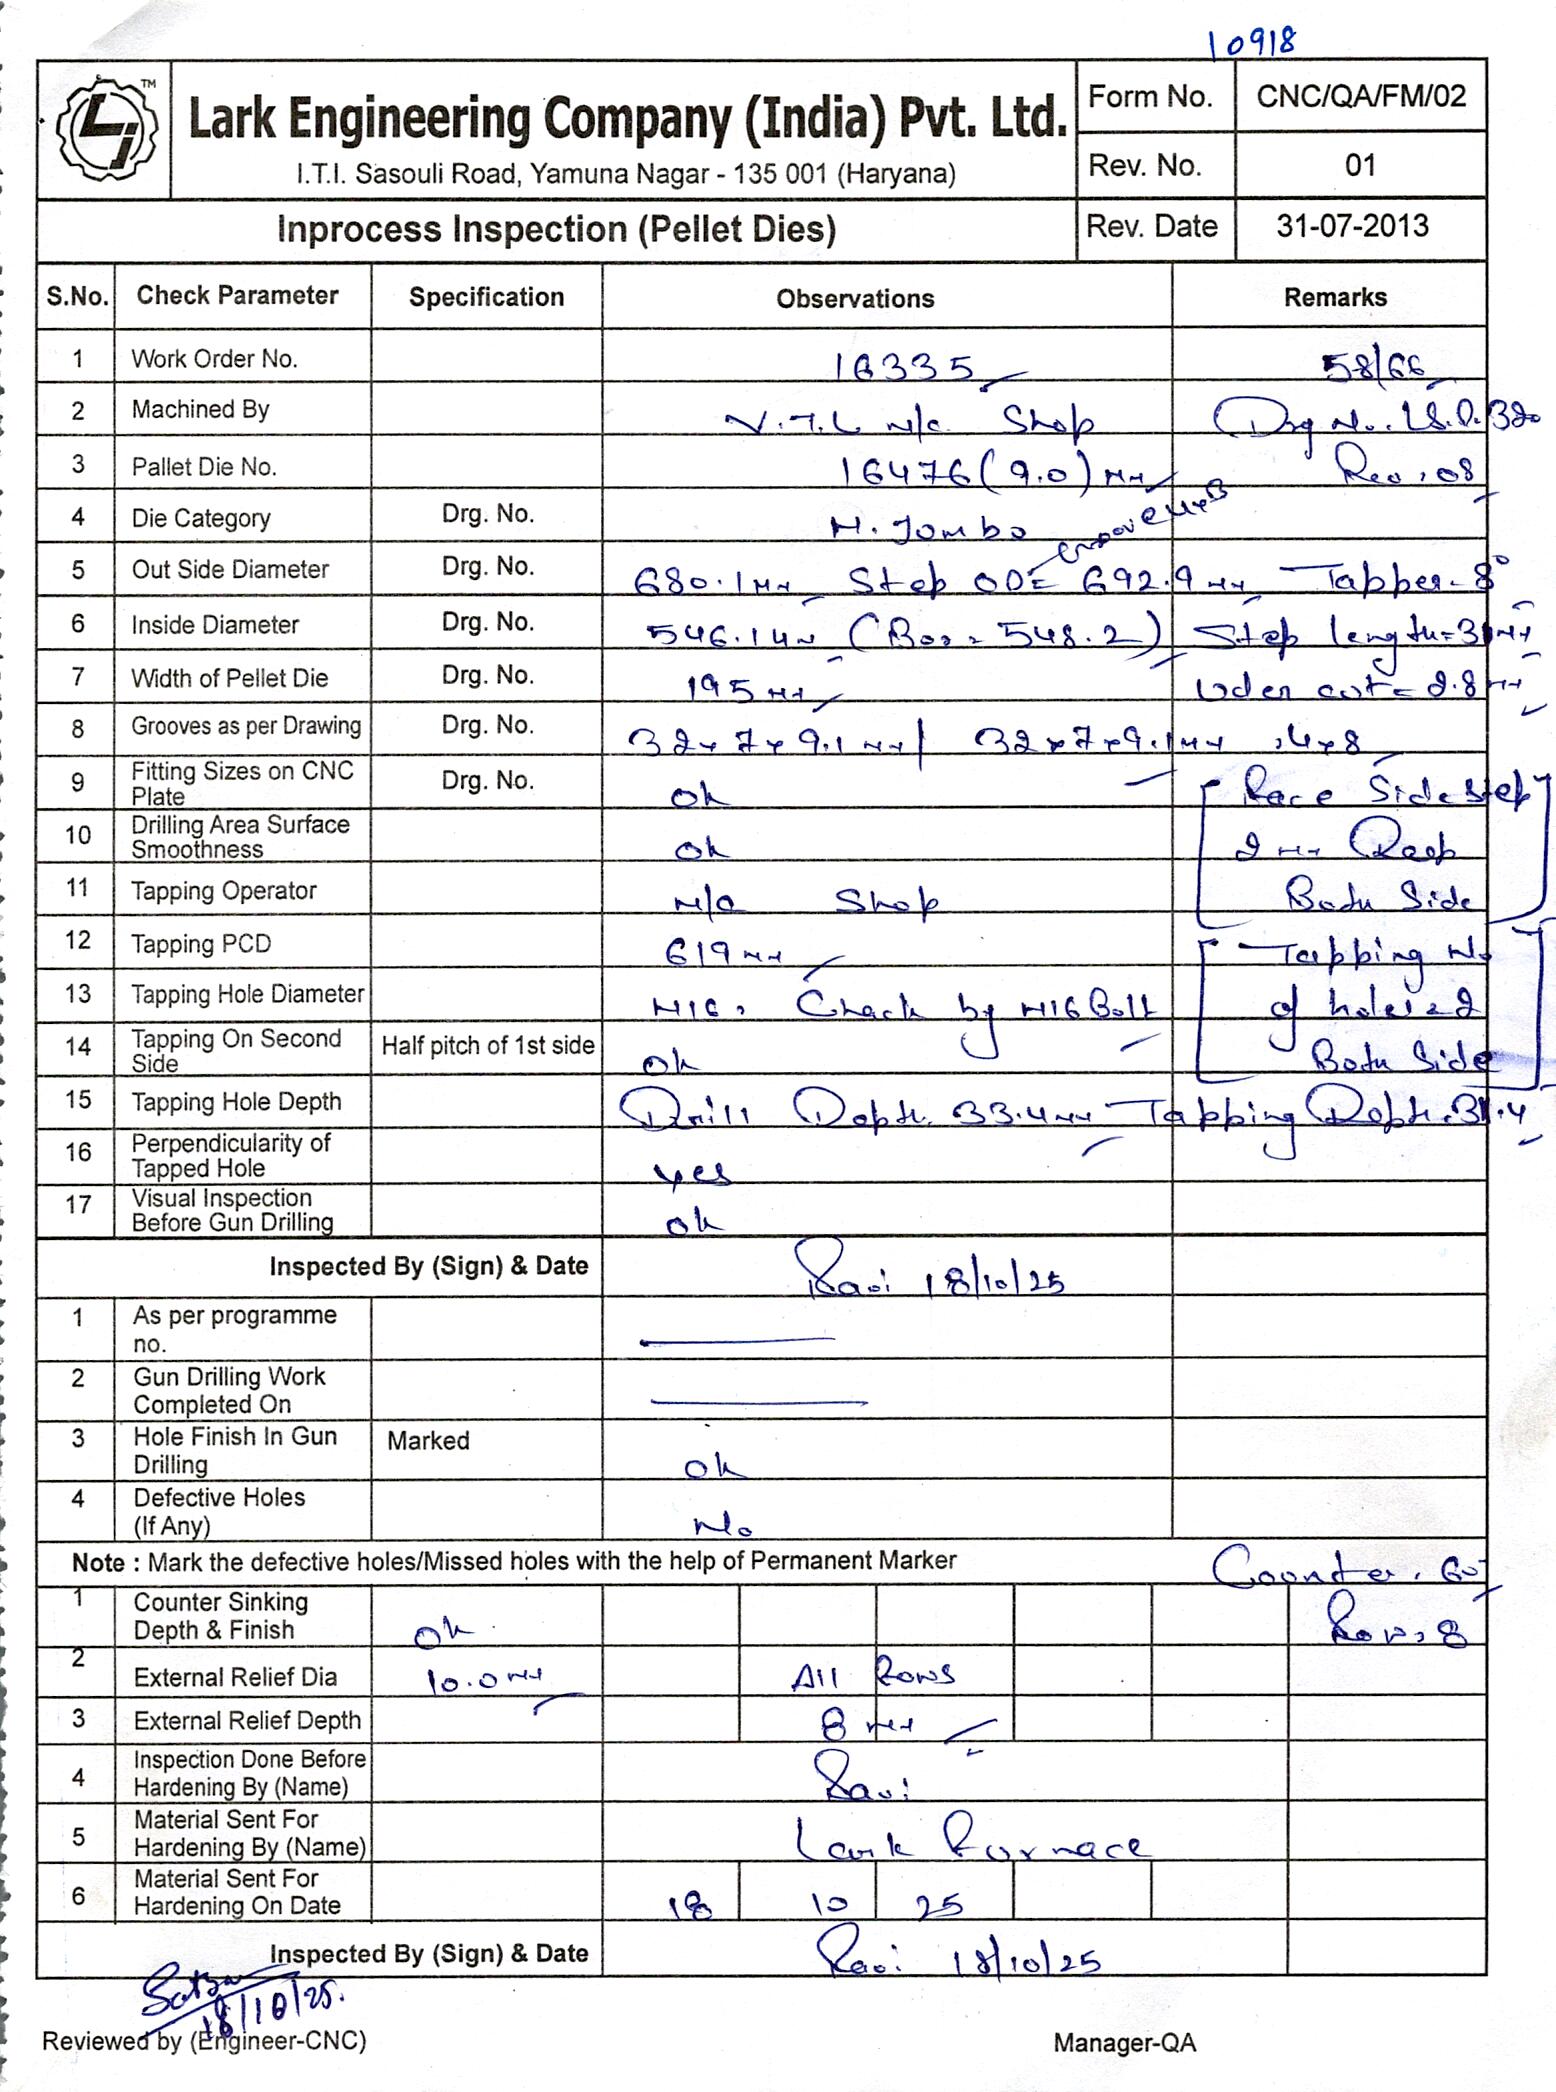 10918
Lark Engineering Company (India) Pvt. Ltd.
I.T.I. Sasouli Road, Yamuna Nagar - 135 001 (Haryana)
Form No. CNC/QA/FM/02
Rev. No. 01
Inprocess Inspection (Pellet Dies)
Rev. Date 31-07-2013
S.No. Check Parameter Specification Observations Remarks
1 Work Order No. 16335 58/66
2 Machined By V.T.L M/c Shop Drg No. 320
3 Pallet Die No. 16476 (9.0) MM Rev. 08
4 Die Category Drg. No. H. Jombo
5 Out Side Diameter Drg. No. 680.1MM Step OD= 692.9 MM Tapper - 8°
6 Inside Diameter Drg. No. 546.1MM (Bor = 548.2) Step length=31MM
7 Width of Pellet Die Drg. No. 195 MM Uder cut = 2.8MM
8 Grooves as per Drawing Drg. No. 32x7x9.1 MM / 32x7x9.1MM, 4x8
9 Fitting Sizes on CNC Plate Drg. No. Ok Race Side Step
10 Drilling Area Surface Smoothness Ok 2 MM Deep
11 Tapping Operator M/c Shop Both Side
12 Tapping PCD 619 MM Tapping No
13 Tapping Hole Diameter M16, Check by M16 Bolt of holes = 2
14 Tapping On Second Side Half pitch of 1st side Ok Both Side
15 Tapping Hole Depth Drill Depth. 33.4MM Tapping Depth. 31.4
16 Perpendicularity of Tapped Hole Yes
17 Visual Inspection Before Gun Drilling Ok
Inspected By (Sign) & Date Ravi 18/10/25
1 As per programme no.
2 Gun Drilling Work Completed On
3 Hole Finish In Gun Drilling Marked Ok
4 Defective Holes (If Any) No
Note : Mark the defective holes/Missed holes with the help of Permanent Marker Counter. 60°
1 Counter Sinking Depth & Finish Ok Row, 8
2 External Relief Dia 10.0 MM All Rows
3 External Relief Depth 8 MM
4 Inspection Done Before Hardening By (Name) Ravi
5 Material Sent For Hardening By (Name) Lark Furnace
6 Material Sent For Hardening On Date 18 10 25
Inspected By (Sign) & Date Ravi 18/10/25
18/10/25.
Reviewed by (Engineer-CNC) Manager-QA